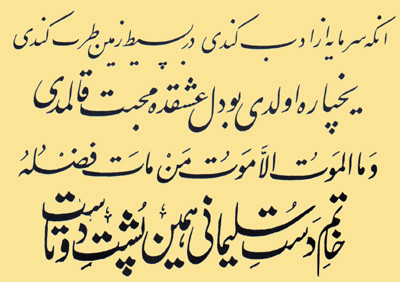 انکه سرمایه از ادب کندی در بسیط زمین طرب کندی
یخپاره اولدی بودل عشقده محبت قالمدی
وَما الموتُ الاَّ مَوتُ مَنْ ماتَ فضْلُهُ
خاتمِ دَستِ سُلیمانی همین پُشتِ دوتاست